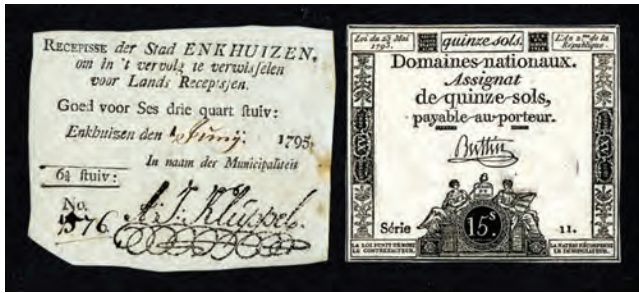 RECEPISSE der Stad ENKHUIZEN,
om in 't vervolg te verwisselen
voor Lands Recepisjen.
Goed voor Ses drie quart stuiv:
Enkhuizen den 1 Junij. 1795.
In naam der Municipaliteit
6¾ stuiv:
No.
1376 A: J: Kluppel.
Loi du 23 Mai
1793.
quinze sols.
L'An 2me de la
République.
Domaines nationaux.
Assignat
de quinze sols,
payable au porteur.
Buttin
15.s
Série 11.
LA LOI PUNIT DE MORT
LE CONTREFACTEUR.
LA NATION RÉCOMPENSE
LE DÉNONCIATEUR.